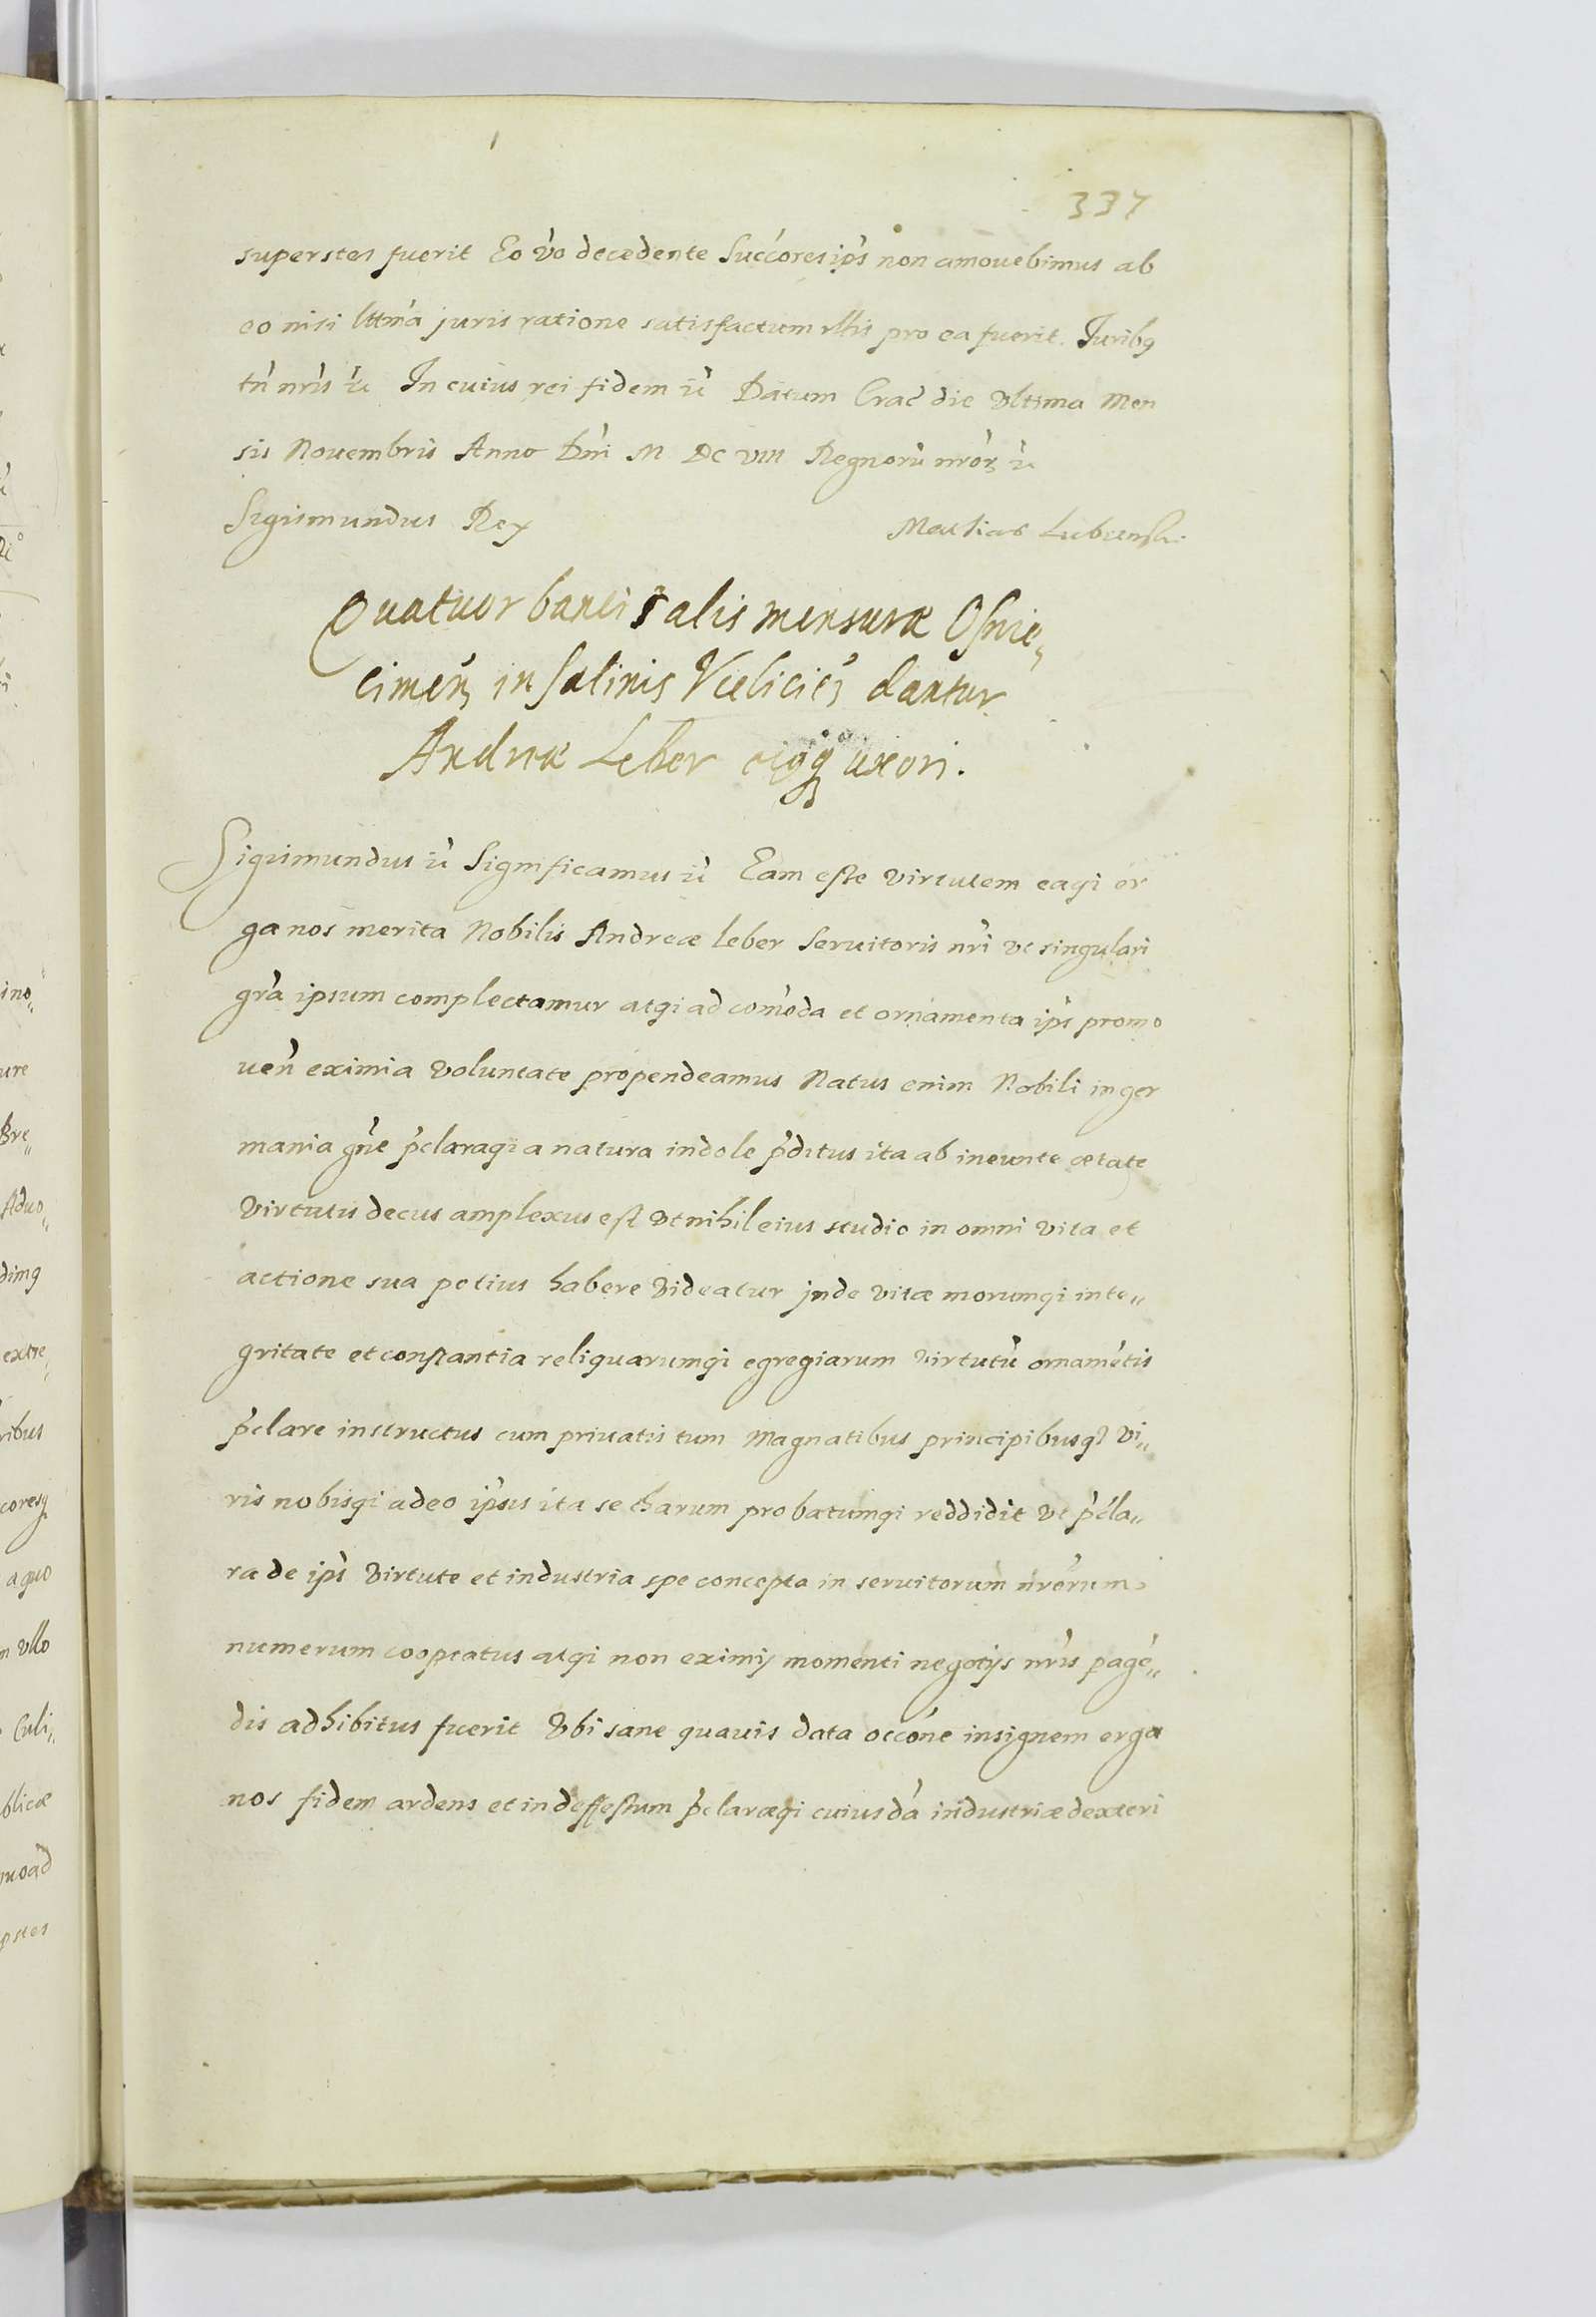 337
superstes fuerit Eo v̀o decedente Succ̀ores ip̀s non amouebimus ab
eo nisi lttm̀a juris ratione satisfactum illis pro ea fuerit. Juribꝫ
tǹ nr̀is ic̀ In cuius rei fidem ic̀ Datum Crac̀ die Vltima Men
sis Nouembris Anno Dn̄i M DC VIII Regnorū nr̄oꝝ ic̀
Sigismundus Rex
Mathias Lubienski
Quatuor banci salis mensuræ Osvie„
cimeń in Salinis Vielicień dantur
Andreæ Leber eiꝰqꝫ uxori.
Sigismundus ic̀ Significamus ic̀ Eam esse virtutem eaqꝫ er
ga nos merita Nobilis Andreæ leber Seruitoris nr̀i vt singulari
gr̀a ipsum complectamur atqꝫ ad com̀oda et ornamenta ip̀s promo
ueǹ eximia voluntate propendeamus Natus enim Nobili in ger
mania gǹe p̀claraqꝫ a natura indole p̀ditus ita ab ineunte ætate
virtutis decus amplexus est vt nihil eius studio in omni vita et
actione sua potius habere videatur jnde vitæ morumqꝫ inte„
gritate et constantia reliquarumqꝫ egregiarum virtutū ornamētis
p̀clare instructus cum priuatis tum Magnatibus principibusqꝫ vi„
ris nobisqꝫ adeo ip̀sis ita se charum probatumqꝫ reddidit vt p̀cla„
ra de ip̀s virtute et industria spe concepta in seruitorum nr̀orum
numerum cooptatus atqꝫ non eximij momenti negotijs nr̀is pagē„
dis adhibitus fuerit Vbi sane quauis data occòne insignem erga
nos fidem ardens et indeffessum p̀claræqꝫ cuiusdā industriæ dexteri